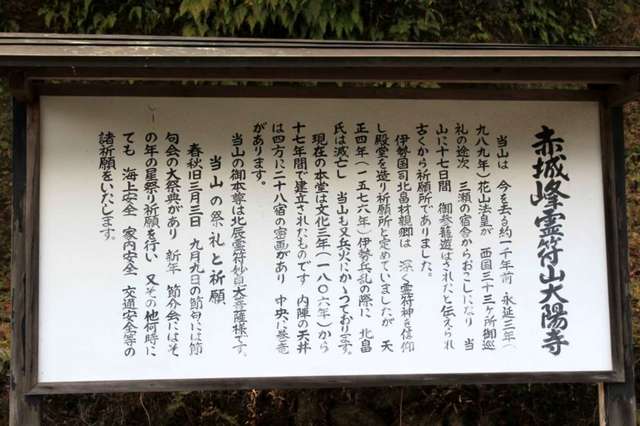 赤城峰霊符山大陽寺
当山は 今を去る約一千年前 永延三年(
九八九年)花山法皇が 西国三十三ヶ所御巡
礼の途次 三瀬の宿舎からおこしになり 当
山に十七日間 御参籠遊ばされたと伝えられ
古くから祈願所でありました。
伊勢国司北畠材親卿は 深く霊符神を信仰
し殿堂を造り祈願所と定めていましたが 天
正四年(一五七六年)伊勢兵乱の際に 北畠
氏は滅亡し 当山も又兵火にかゝっております。
現在の本堂は文化三年(一八〇六年)から
十七年間で建立されたものです 内陣の天井
は四方に二十八宿の密画があり 中央に蟠竜
があります。
当山の祭礼と祈願
当山の御本尊は北辰霊符妙見大菩薩様です。
春秋旧三月三日 九月九日の節句には節
句会の大祭典があり 新年 節分会にはそ
の年の星祭り祈願を行い 又その他何時に
ても 海上安全 家内安全 交通安全等の
諸祈願をいたします。